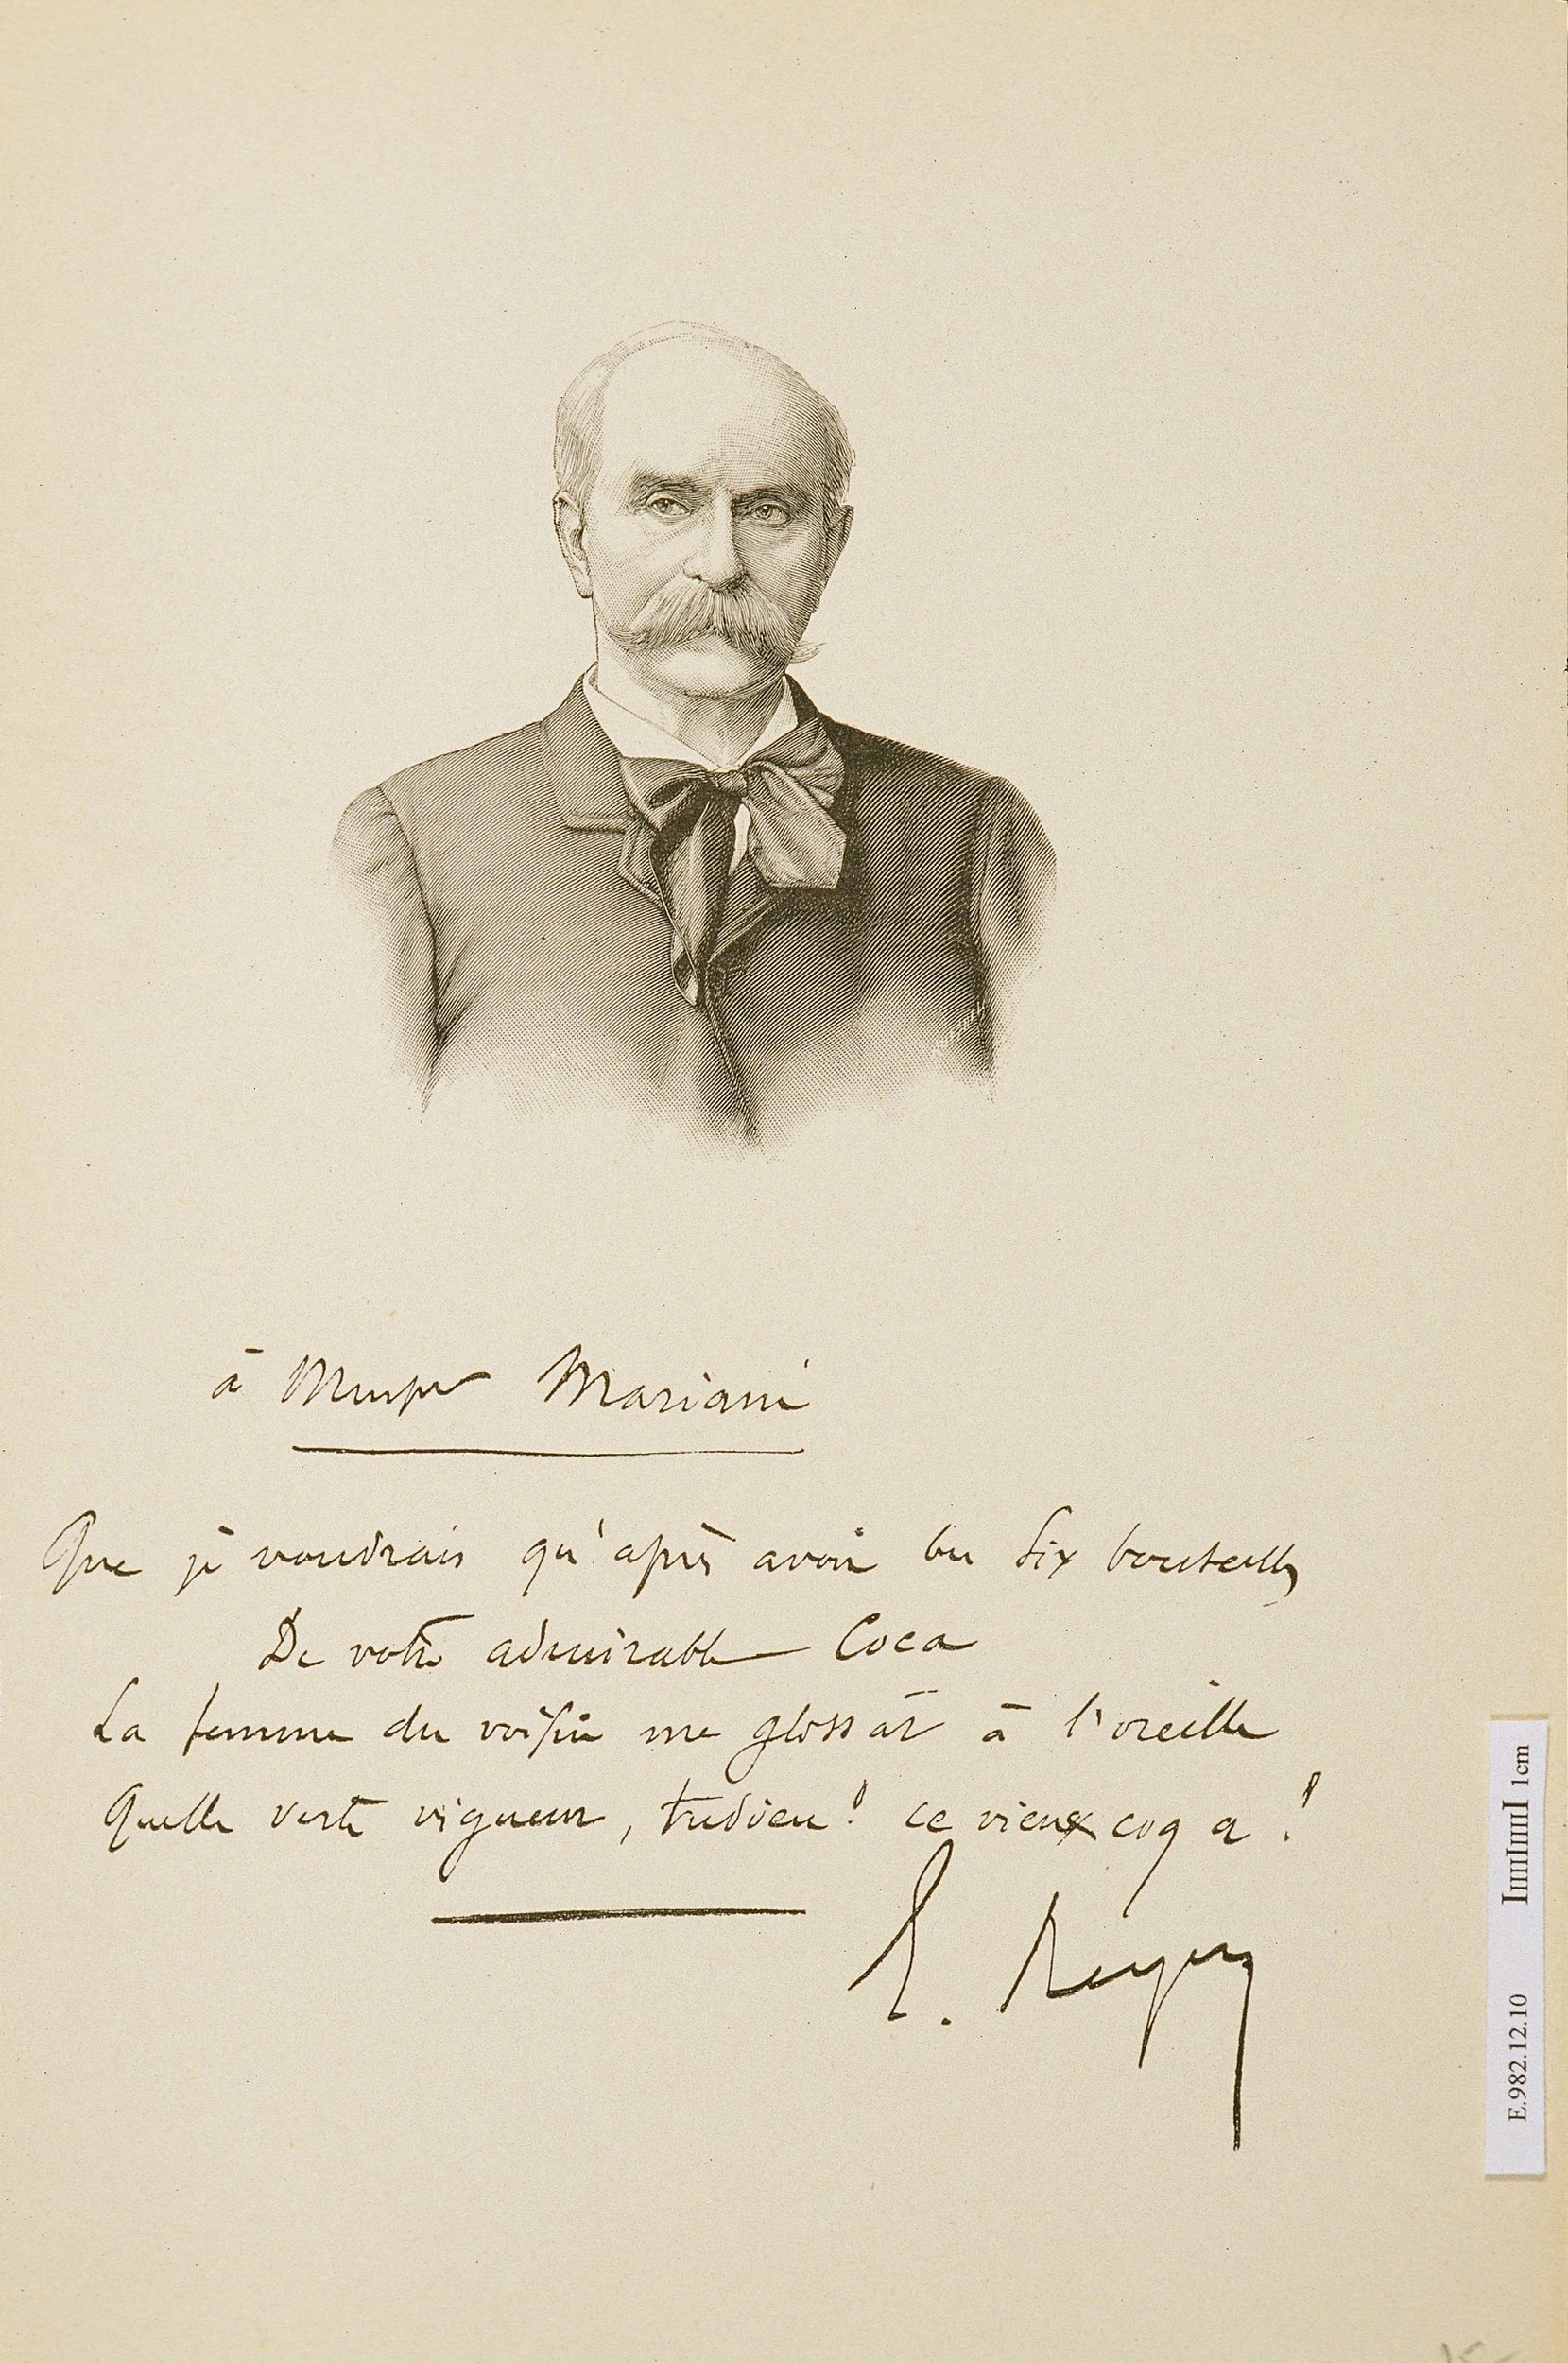 à Monsieur Mariani
Que je voudrais qu'après avoir bu six bouteilles
De votre admirable Coca
La femme du voisin me glossât à l'oreille
Quelle verte vigueur, tudieu! ce vieux coq a!
E. Reyer
1cm
E.982.12.10